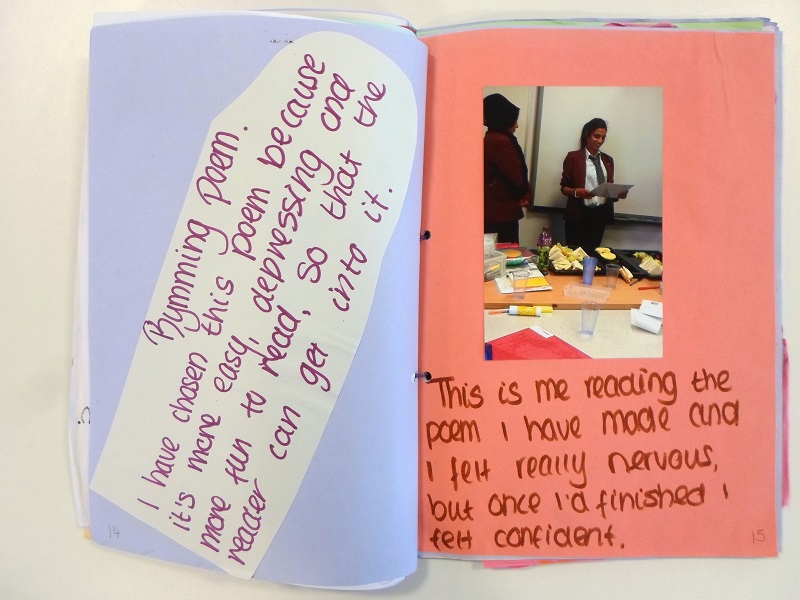 Rymming poem.
I have chosen this poem because
it's more easy, depressing and
more fun to read, so that the
reader can get into it.
14
This is me reading the
poem I have made and
I felt really nervous,
but once I'd finished I
felt confident.
15